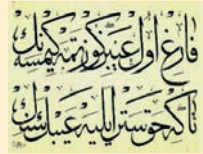 فارغ اول عیبن کورتمه کیمسه نك
تاکه حق ستر ایلیه عیبك سنك